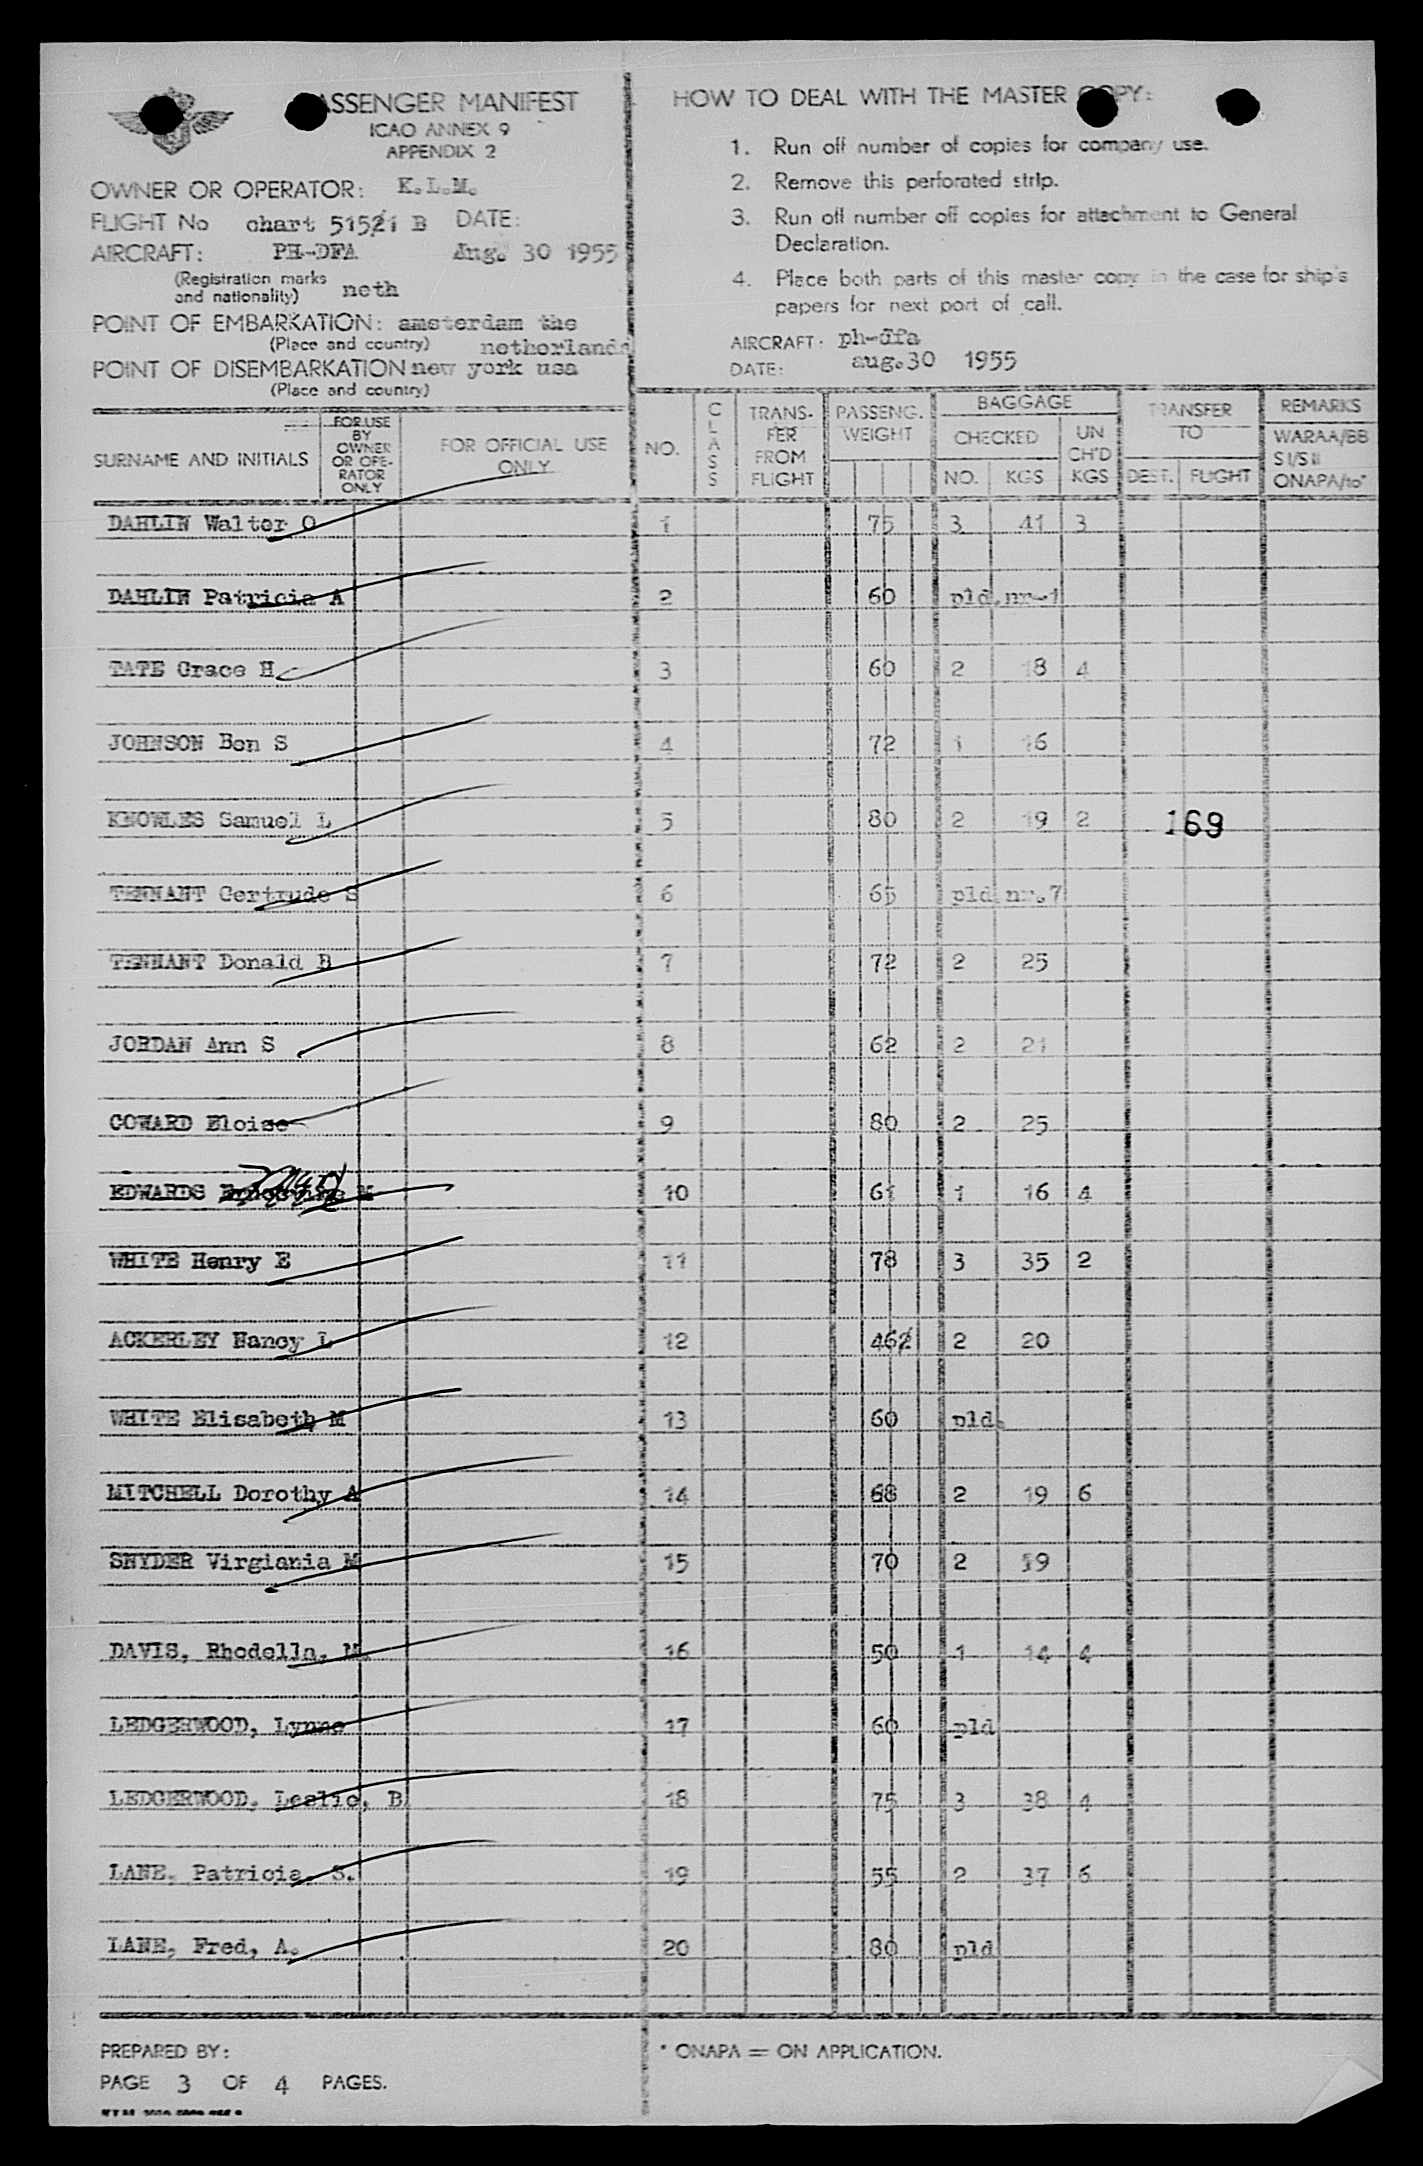 PASSENGER MANIFEST
ICAO ANNEX 9
APPENDIX 2
OWNER OR OPERATOR: K.L.M.
FLIGHT No chart 51521 B DATE:
AIRCRAFT: PH-DFA Aug. 30 1955
(Registration marks
and nationality) neth
POINT OF EMBARKATION: amsterdam the
(Place and country) netherlands
POINT OF DISEMBARKATION new york usa
(Place and country)
HOW TO DEAL WITH THE MASTER COPY:
1. Run off number of copies for company use.
2. Remove this perforated strip.
3. Run off number off copies for attachment to General
Declaration.
4. Place both parts of this master copy in the case for ship's
papers for next port of call.
AIRCRAFT: ph-dfa
DATE: aug.30 1955
SURNAME AND INITIALS
FOR USE
BY
OWNER
OR OPE-
RATOR
ONLY
FOR OFFICIAL USE
ONLY
NO.
CLASS
TRANS-
FER
FROM
FLIGHT
PASSENG.
WEIGHT
BAGGAGE
CHECKED
NO. KGS
UN
CH'D
KGS
TRANSFER
TO
DEST. FLIGHT
REMARKS
WARAA/BB
S I/S II
ONAPA/to*
DAHLIN Walter O 1 75 3 41 3
DAHLIN Patricia A 2 60 pld.nr-1
TATE Grace H 3 60 2 18 4
JOHNSON Ben S 4 72 1 16
KNOWLES Samuel L 5 80 2 19 2 169
TENNANT Gertrude S 6 65 pld nr.7
TENNANT Donald B 7 72 2 25
JORDAN Ann S 8 62 2 21
COWARD Eloise 9 80 2 25
EDWARDS M 10 61 1 16 4
WHITE Henry E 11 78 3 35 2
ACKERLEY Nancy L 12 462 2 20
WHITE Elisabeth M 13 60 pld.
MITCHELL Dorothy A 14 68 2 19 6
SNYDER Virgiania M 15 70 2 19
DAVIS, Rhodella, M. 16 50 1 14 4
LEDGERWOOD, Lynne 17 60 pld
LEDGERWOOD, Leslie, B 18 75 3 38 4
LANE, Patricia, S. 19 55 2 37 6
LANE, Fred, A. 20 80 pld
PREPARED BY:
PAGE 3 OF 4 PAGES.
* ONAPA = ON APPLICATION.